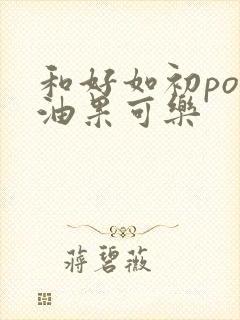 和好如初po
油果可樂
蔣碧薇